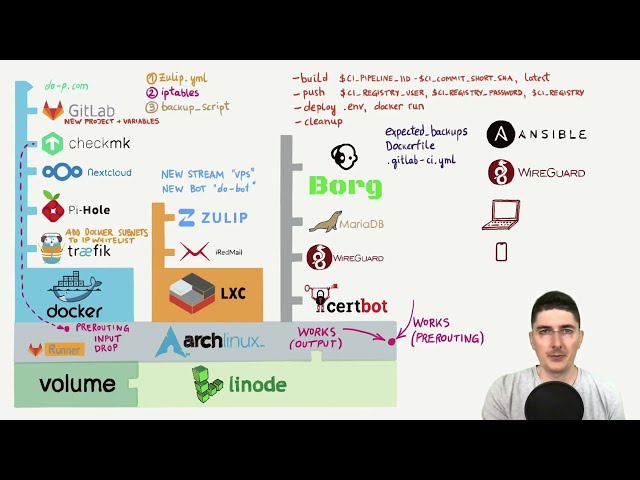 do-p.com
GitLab
NEW PROJECT + VARIABLES
checkmk
Nextcloud
Pi-Hole
ADD DOCKER SUBNETS
TO IP WHITELIST
træfik
docker
PREROUTING
INPUT
DROP
Runner
volume
1 Zulip.yml
2 iptables
3 backup_script
NEW STREAM "VPS"
NEW BOT "do-bot"
ZULIP
iRedMail
LXC
archlinux
linode
- build $CI_PIPELINE_IID-$CI_COMMIT_SHORT_SHA, latest
- push $CI_REGISTRY_USER, $CI_REGISTRY_PASSWORD, $CI_REGISTRY
- deploy .env, docker run
- cleanup
expected_backups
Dockerfile
.gitlab-ci.yml
Borg
MariaDB
WIREGUARD
certbot
WORKS
(OUTPUT)
WORKS
(PREROUTING)
ANSIBLE
WIREGUARD